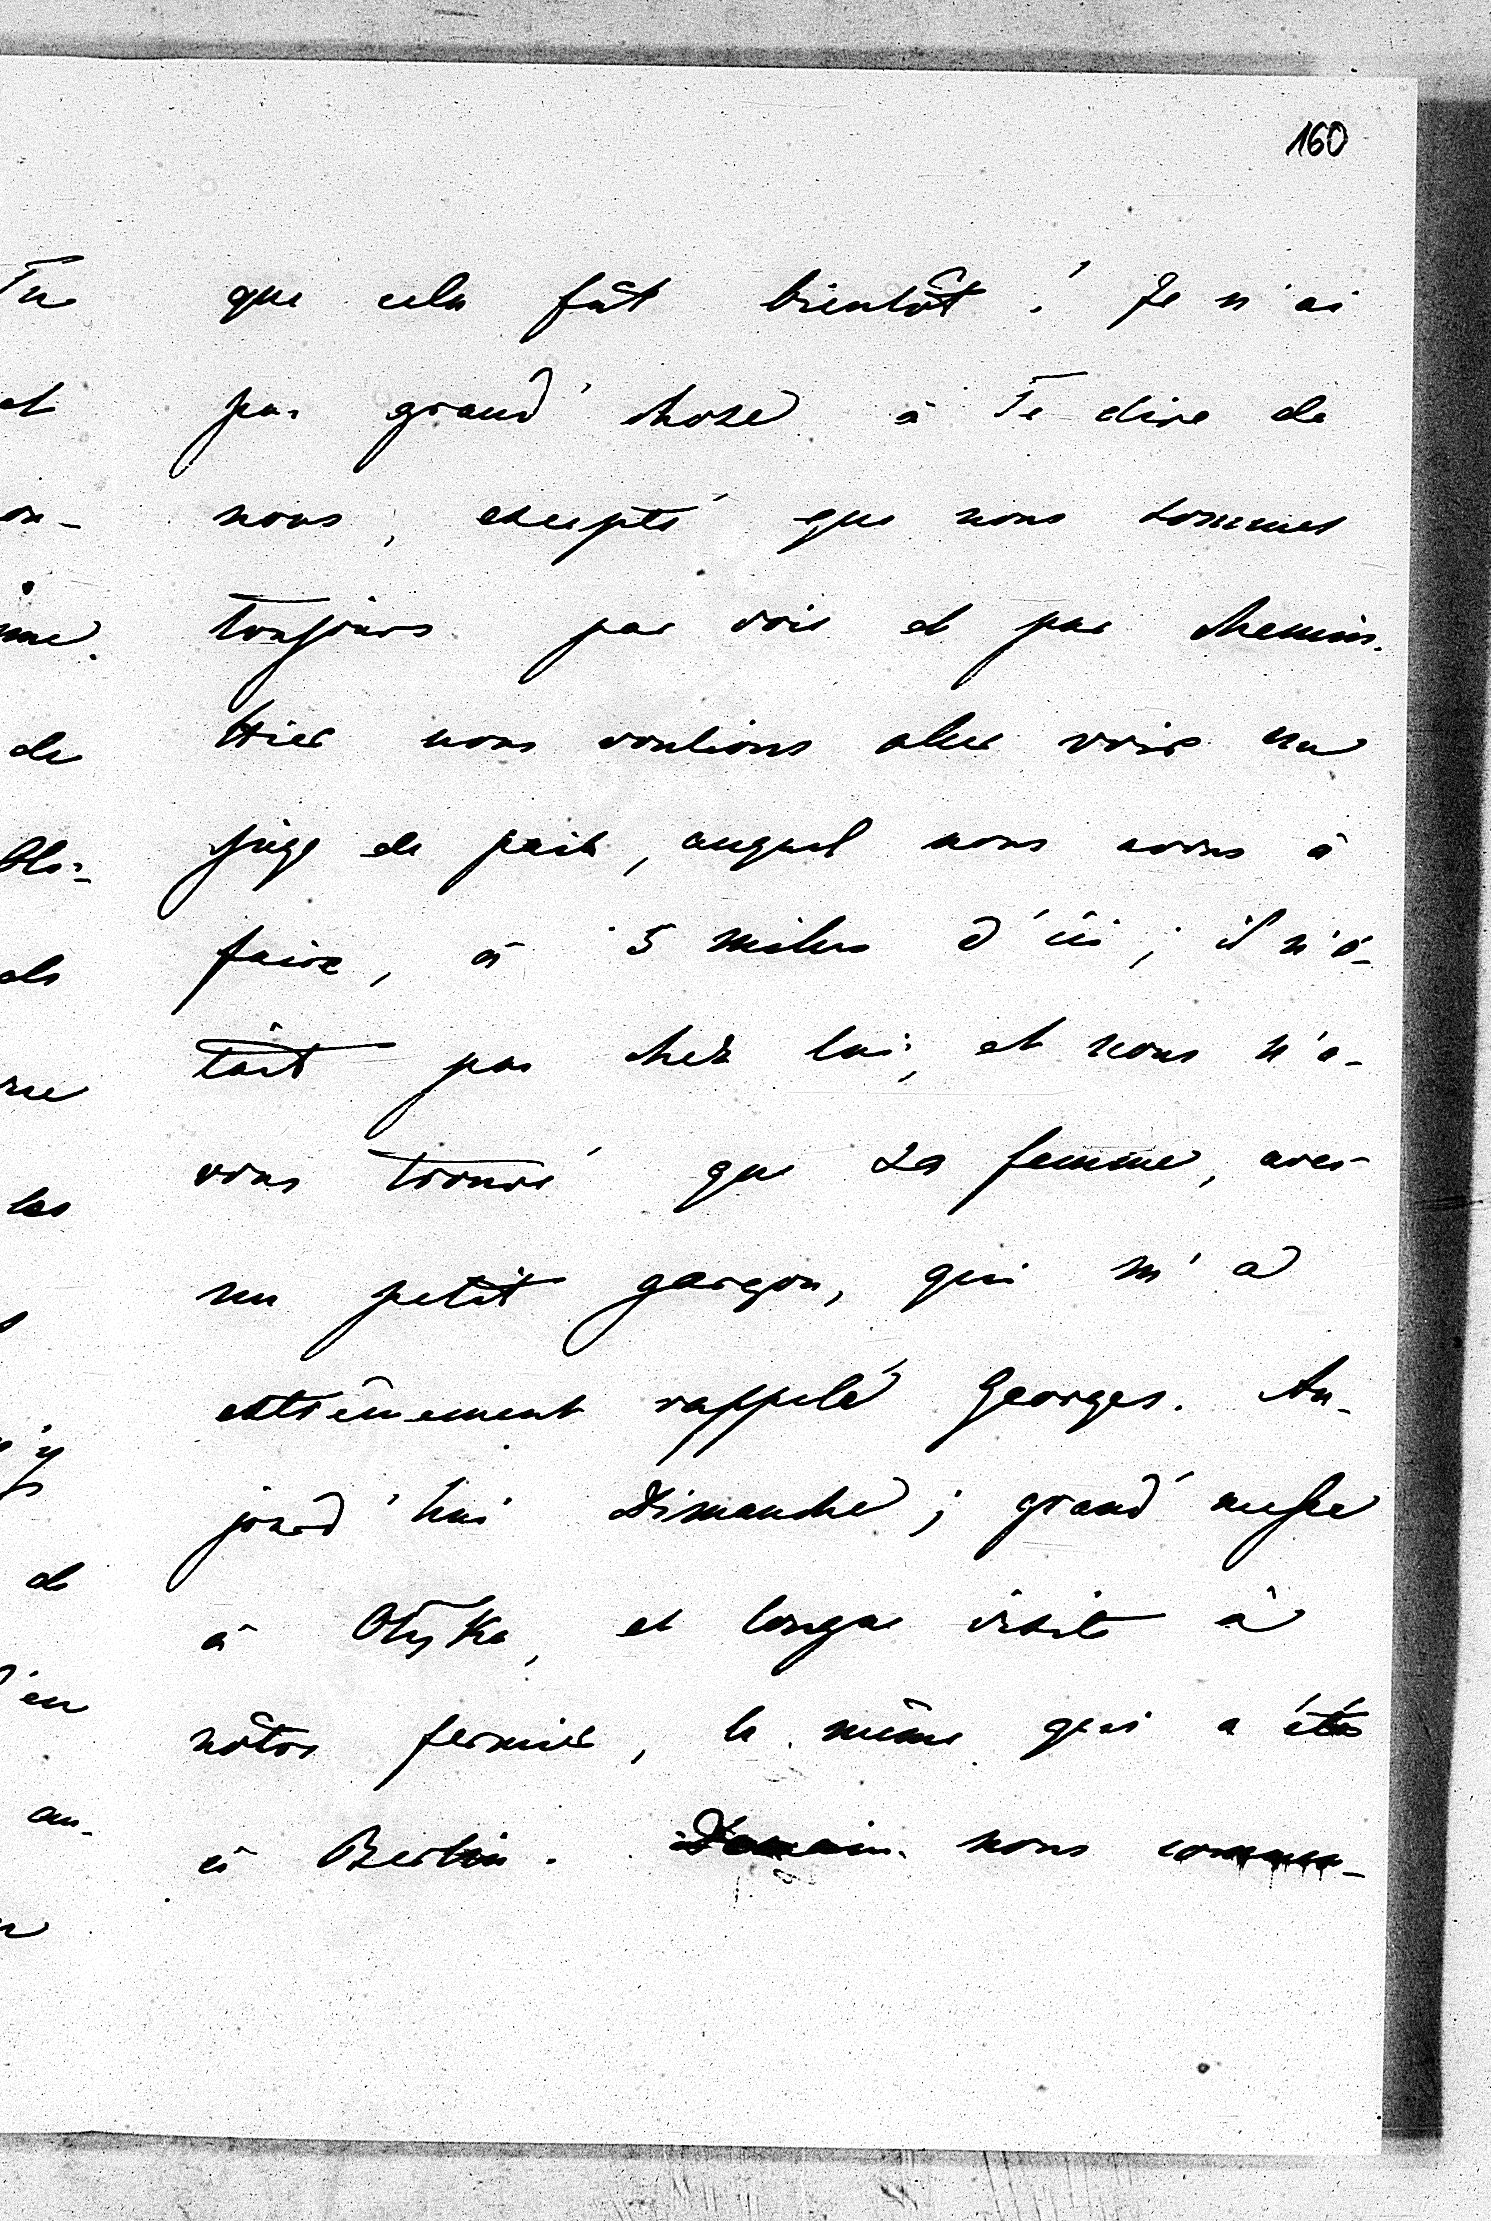 160
que cela fût bientôt! Je n'ai
pas grand'chose à Te dire de
nous, excepté que nous sommes
toujours par voie et par chemins.
Hier nous voulions aller voir un
juge de paix, auquel nous avons à
faire, à 5 miles d'ici; il n'é-
tait pas chez lui, et nous n'a-
vons trouvé que sa femme, avec
un petit garçon, qui m'a
extrêmement rappelé Georges. Au-
jourd'hui Dimanche; grand'messe
à Olyka, et longue visite à
nôtre fermier, le même qui a été
à Berlin. Demain nous